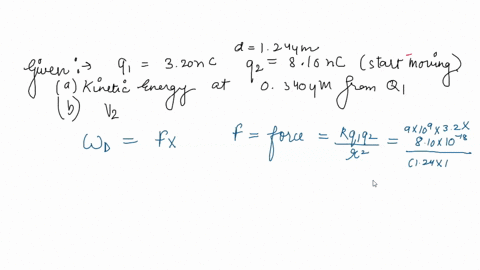 d = 1.24 μm
Given :→ q1 = 3.20 nC q2 = 8.10 nC (start moving)
(a) Kinetic Energy at 0.340 μm from Q1
(b) V2
ωD = Fx F = force = Kq1q2 / r² = 9×10⁹ × 3.2 × 8.10 × 10⁻¹⁸ / (1.24×1